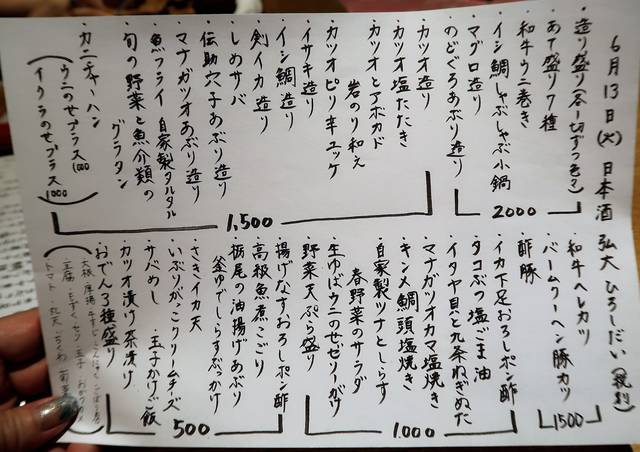 6月13日(火) 日本酒 弘大 ひろしだい (税別)
・造り盛り(各一切ずつ2き?)
・あて盛り7種
・和牛ウニ巻き
・イシ鯛しゃぶしゃぶ小鍋
・マグロ造り
・のどぐろあぶり造り
2000
・カツオ造り
・カツオ塩たたき
・カツオとアボカド
岩のり和え
・カツオピリ辛ユッケ
・イサキ造り
・イシ鯛造り
・剣イカ造り
・しめサバ
・伝助穴子あぶり造り
・マナガツオあぶり造り
・魚フライ 自家製タルタル
・旬の野菜と魚介類の
グラタン
・カニチャーハン
(ウニのせプラス1000
イクラのせプラス1000)
1,500
・和牛ヘレカツ
・バームクーヘン豚カツ
1500
・酢豚
・イカ下足おろしポン酢
・タコぶつ塩ごま油
・イタヤ貝と九条ねぎぬた
・マナガツオカマ塩焼き
・キンメ鯛頭塩焼き
・自家製ツナとしらす
春野菜のサラダ
・生ゆばウニのせゼリーがけ
・野菜天ぷら盛り
1.000
・揚げなすおろしポン酢
・高級魚煮こごり
・栃尾の油揚げあぶり
釜ゆでしらすぶっかけ
・さきイカ天
・いぶりがっこクリームチーズ
・サバめし ・玉子かけご飯
・カツオ漬け茶漬け
・おでん3種盛り
500
(大根 厚揚 牛すじ こんにゃく ごぼう天
豆腐 もずく セリ 玉子
トマト・丸天・ちくわ